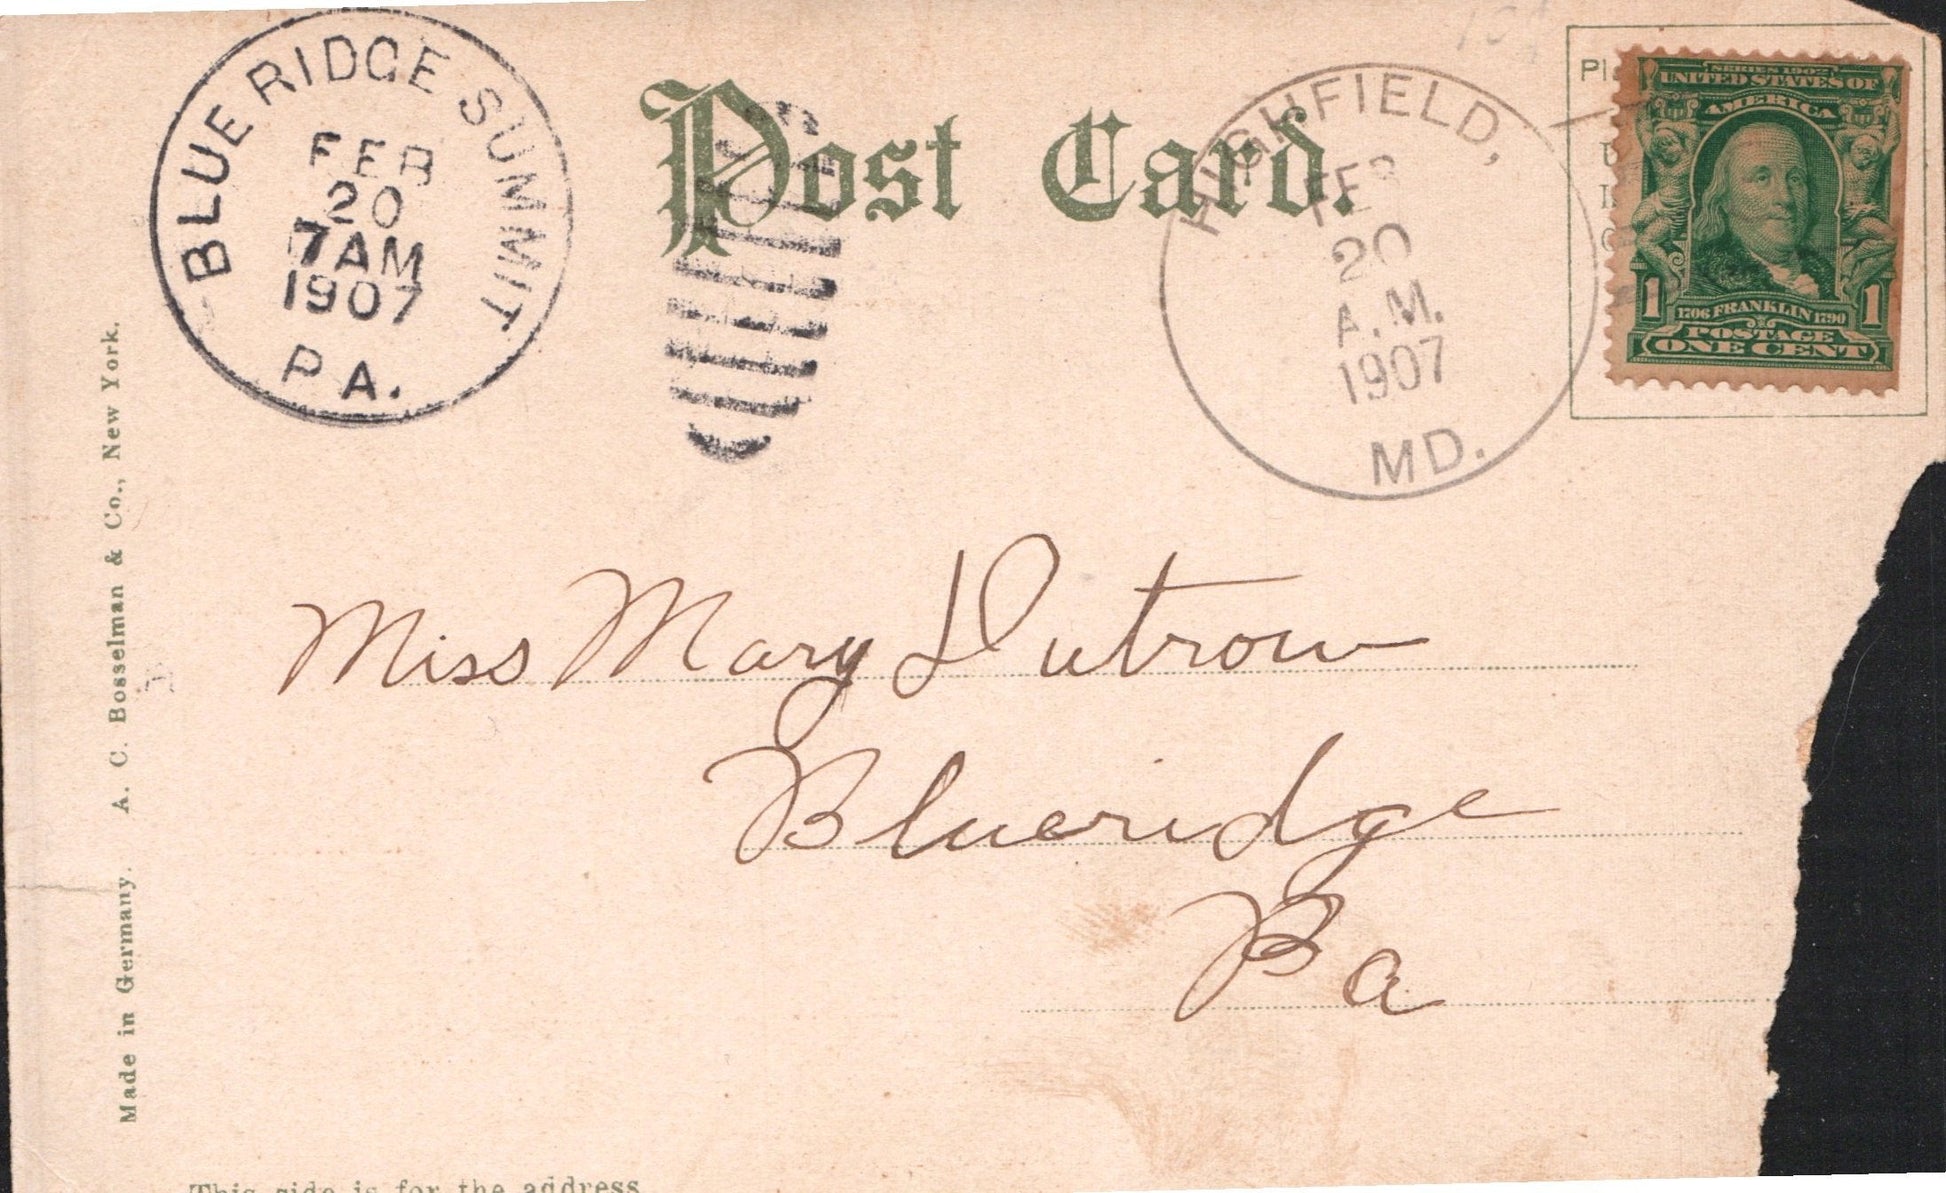 BLUE RIDGE SUMMIT
FEB
20
7 AM
1907
PA.
Post Card.
HIGHFIELD,
FEB
20
A.M.
1907
MD.
SERIES 1902
UNITED STATES OF
AMERICA
1 1
1706 FRANKLIN 1790
POSTAGE
ONE CENT
Miss Mary Dutrow
Blueridge
Pa
Made in Germany. A. C. Bosselman & Co., New York.
This side is for the address